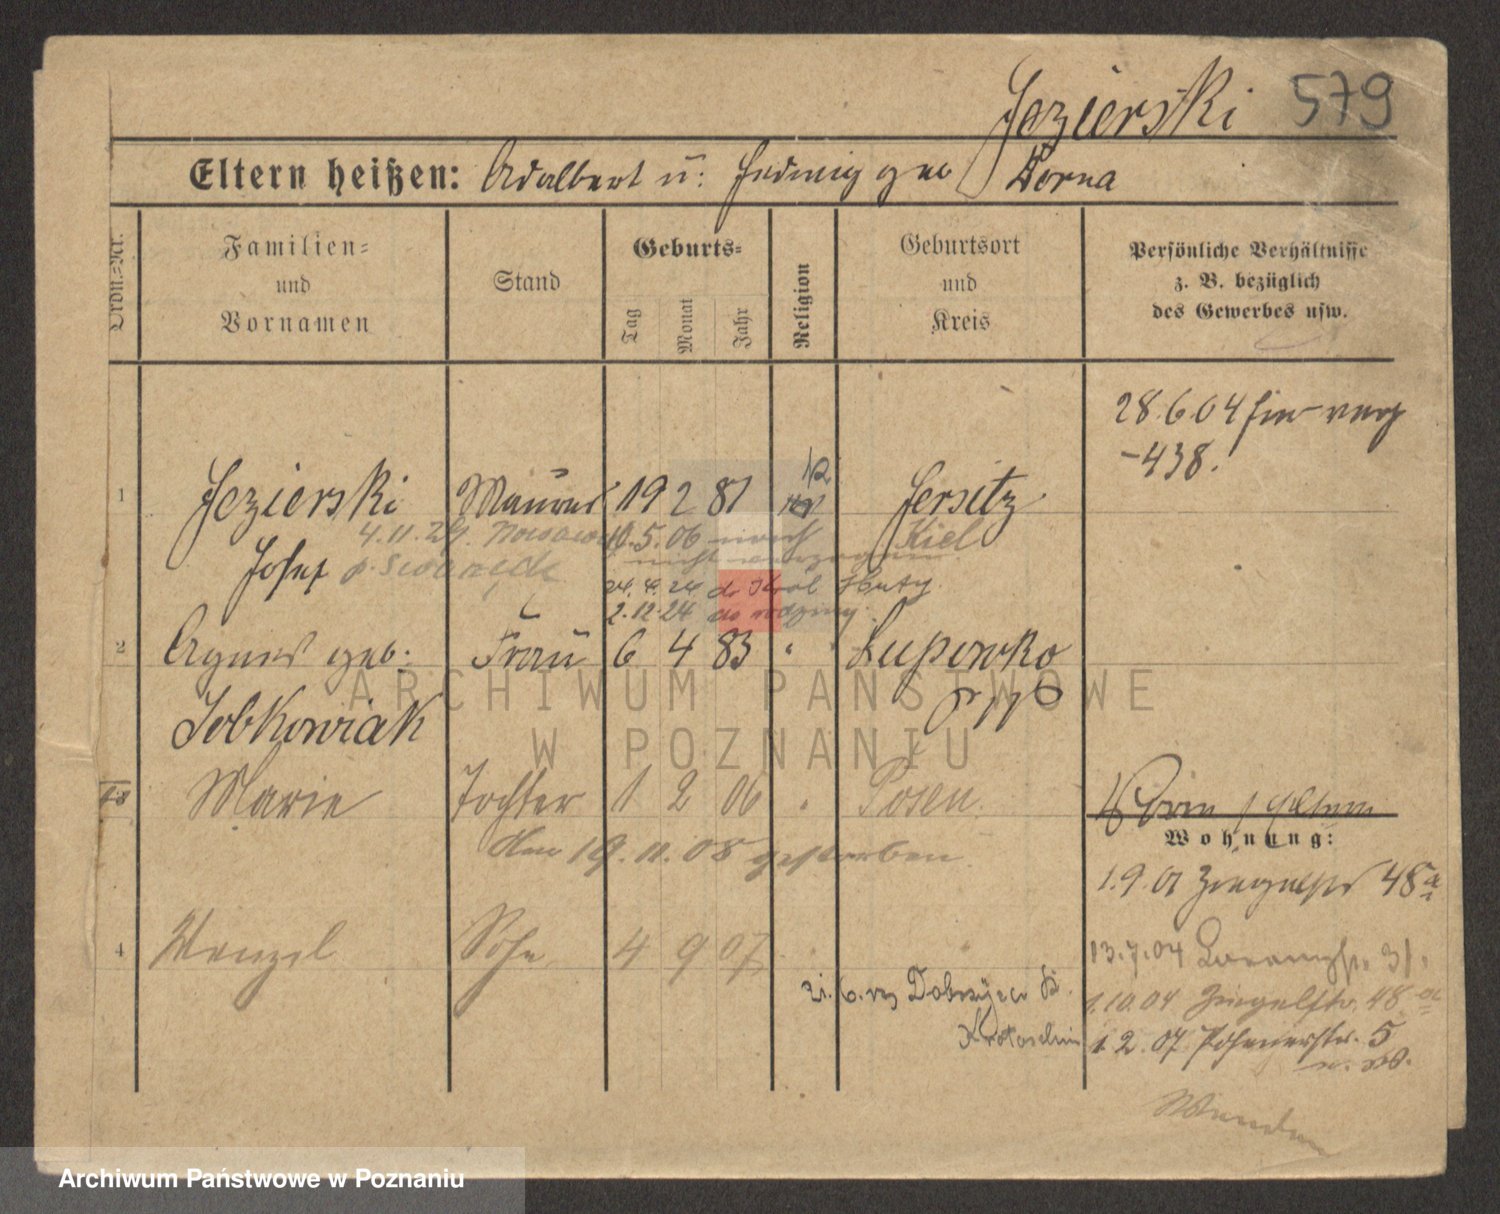 Jezierski 579
Eltern heißen: Adalbert u: Hedwig geb Dorna
Ordn.=Nr.
Familien=
und
Vornamen
Stand
Geburts=
Tag
Monat
Jahr
Religion
Geburtsort
und
Kreis
Persönliche Verhältnisse
z. B. bezüglich
des Gewerbes usw.
28.6.04 hier
-438.
1 Jezierski Maurer 19 2 81 Jersitz
4.11.29. 10.5.06 nach Kiel
Josef
nicht
24.4.24 do Król Huty
2.12.24 do rodziny.
2 Agnes geb: Frau 6 4 83 " Lupowko
Sobkowiak
Marie Tochter 1 2 06 " Posen.
Den 19.11.08 gestorben.
Wohnung:
1.9.01 Ziegelstr 48a
4 Wenzel Sohn 4 9 07
13.7.04 31.
21.6. Dobrzyca
1.10.04 Ziegelstr. 48a
Krotoschin
1.2.07 Posenerstr. 5
ARCHIWUM PAŃSTWOWE
W POZNANIU
Archiwum Państwowe w Poznaniu